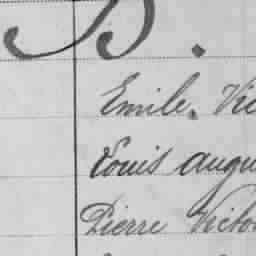 B.
Emile. Vic
Louis augu
Pierre Victo